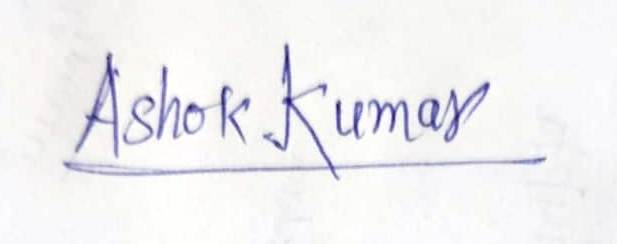 Ashok Kumar